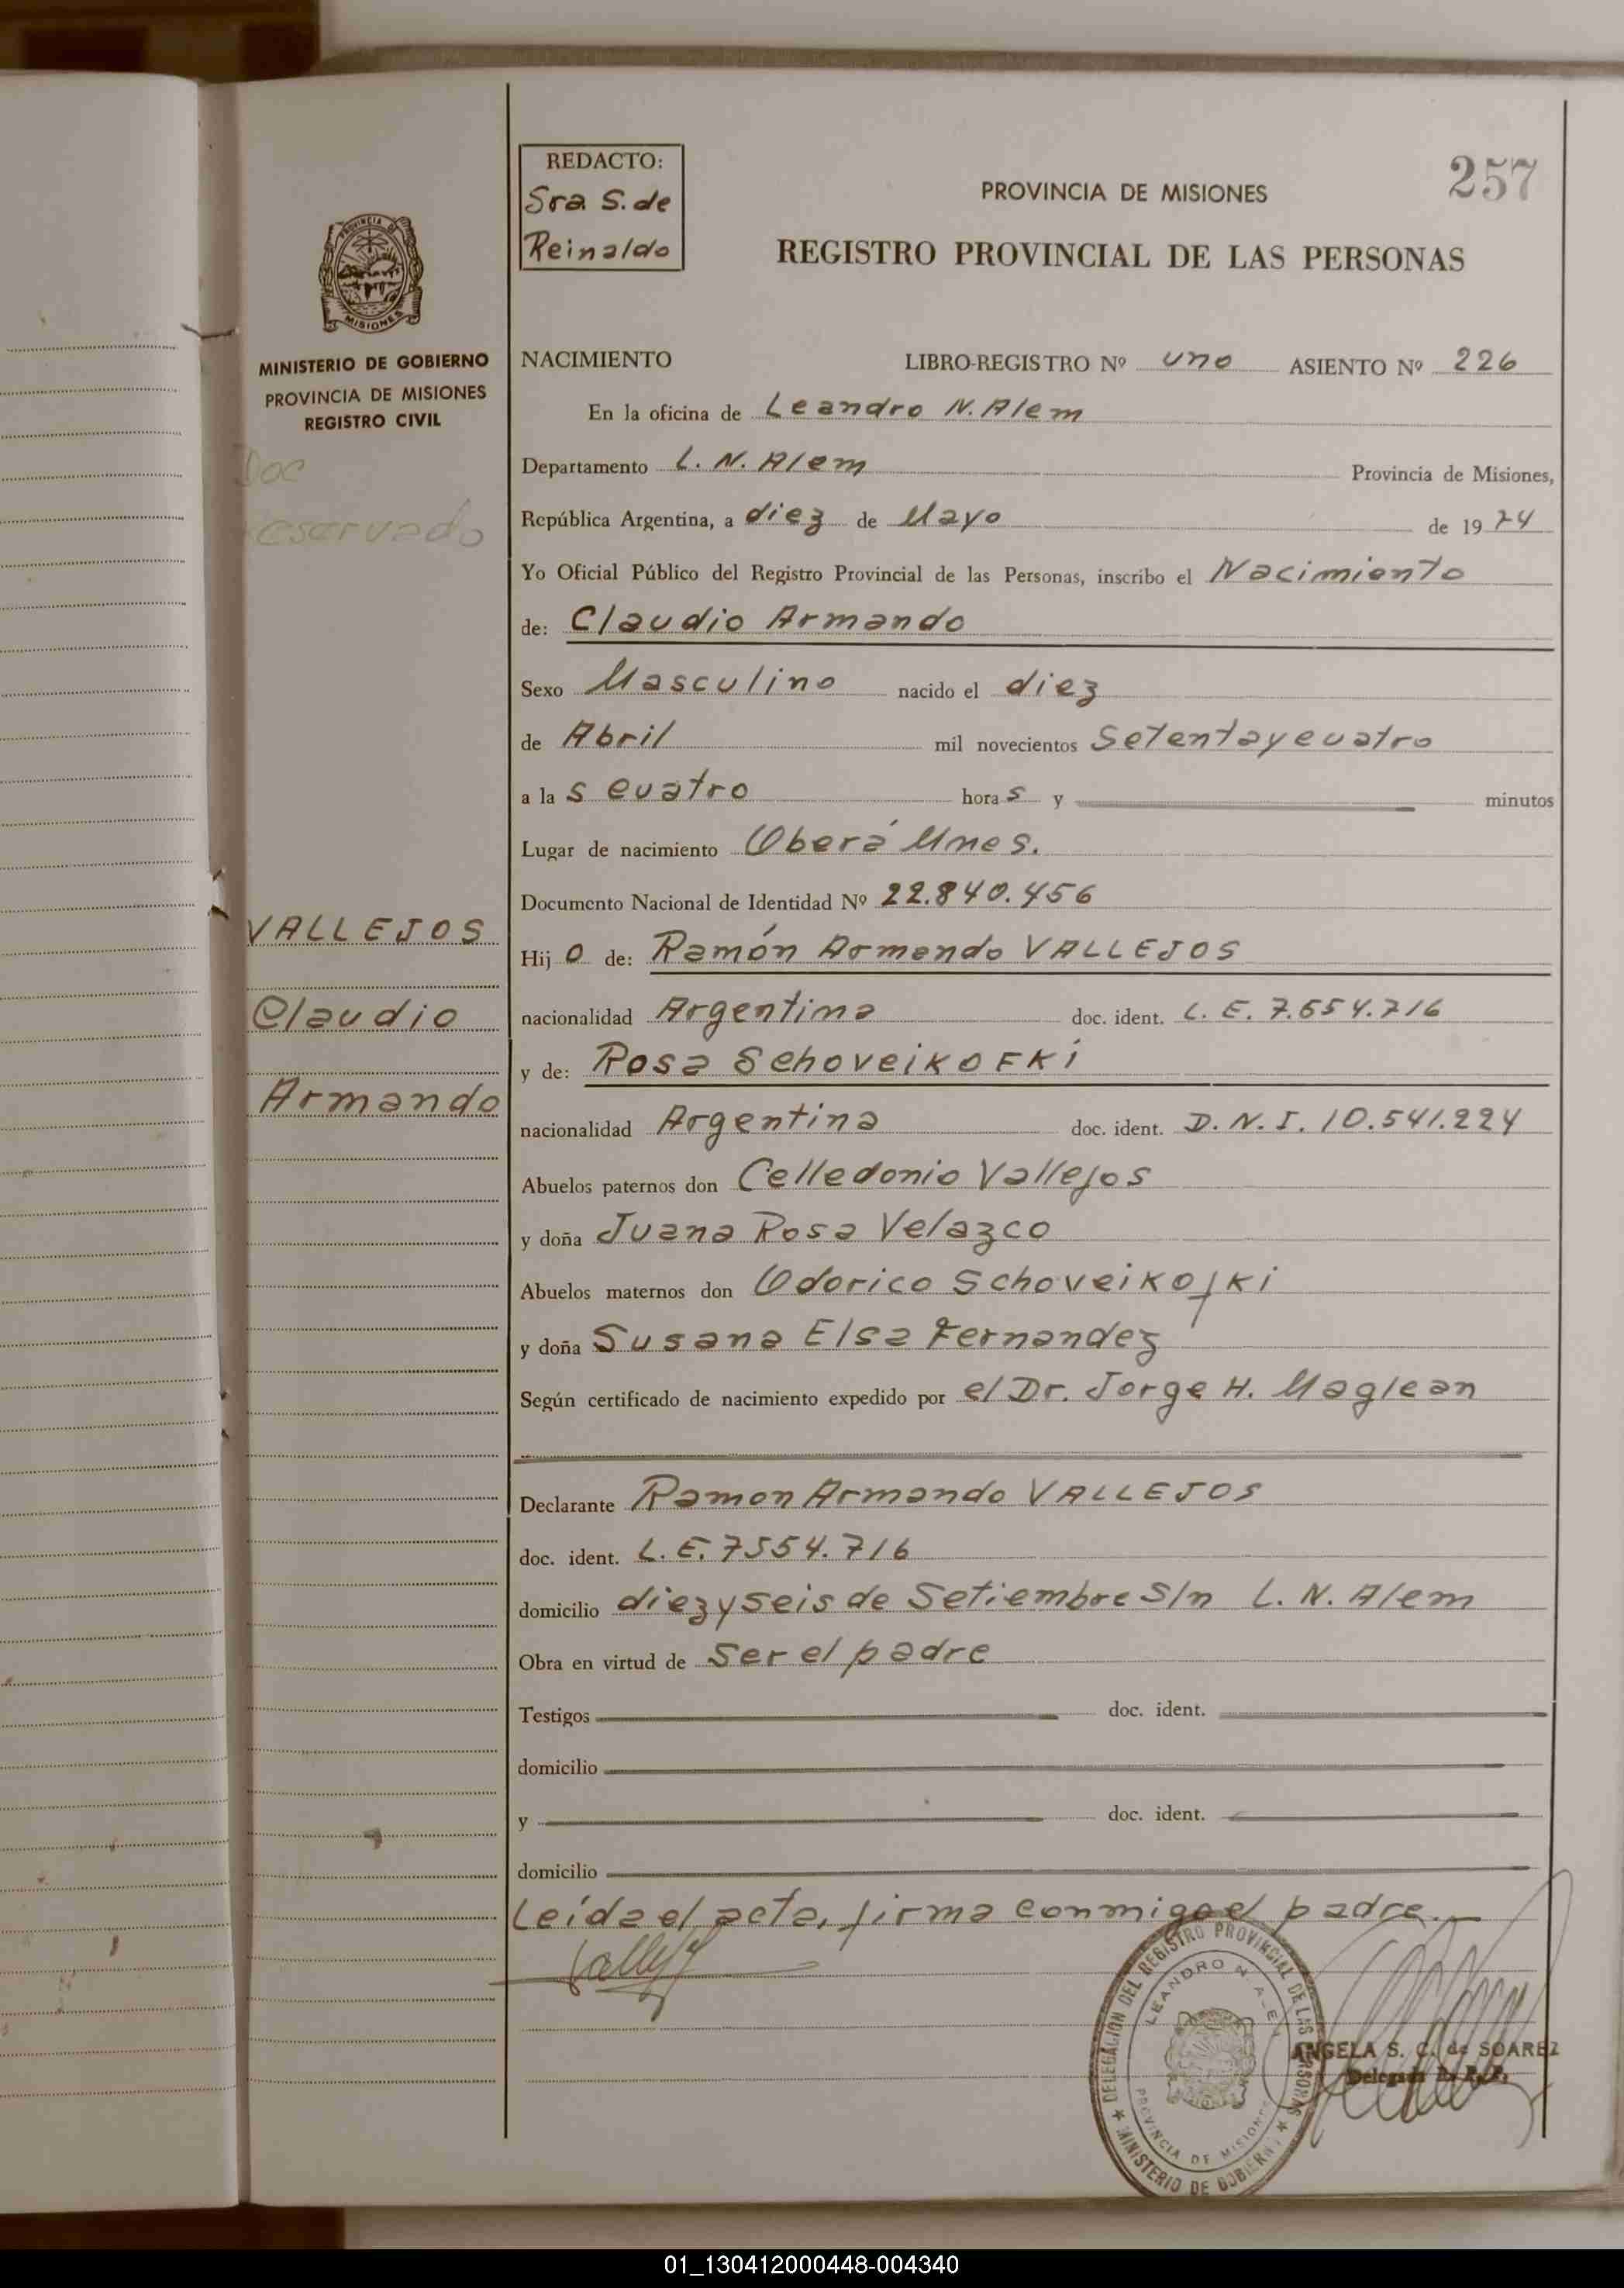 REDACTO:
Sra S. de
Reinaldo
257
PROVINCIA DE MISIONES
REGISTRO PROVINCIAL DE LAS PERSONAS
PROVINCIA DE
MISIONES
MINISTERIO DE GOBIERNO
PROVINCIA DE MISIONES
REGISTRO CIVIL
Doc
reservado
VALLEJOS
Claudio
Armando
NACIMIENTO LIBRO-REGISTRO Nº uno ASIENTO Nº 226
En la oficina de Leandro N. Alem
Departamento L. N. Alem Provincia de Misiones,
República Argentina, a diez de Mayo de 1974
Yo Oficial Público del Registro Provincial de las Personas, inscribo el Nacimiento
de: Claudio Armando
Sexo Masculino nacido el diez
de Abril mil novecientos Setentaycuatro
a la s cuatro hora s y minutos
Lugar de nacimiento Oberá Mnes.
Documento Nacional de Identidad Nº 22.840.456
Hij o de: Ramón Armando VALLEJOS
nacionalidad Argentina doc. ident. L. E. 7.554.716
y de: Rosa SchoveikoFKi
nacionalidad Argentina doc. ident. D. N. I. 10.541.224
Abuelos paternos don Celledonio Vallejos
y doña Juana Rosa Velazco
Abuelos maternos don Odorico Schoveikofki
y doña Susana Elsa Fernandez
Según certificado de nacimiento expedido por el Dr. Jorge H. Maglean
Declarante Ramon Armando VALLEJOS
doc. ident. L. E. 7554.716
domicilio diezyseis de Setiembre S/n L. N. Alem
Obra en virtud de Ser el padre
Testigos doc. ident.
domicilio
y doc. ident.
domicilio
Leída el acta, firma conmigo el padre.
DELEGACION DEL REGISTRO PROVINCIAL DE LAS PERSONAS
LEANDRO N. ALEM
PROVINCIA DE MISIONES
MINISTERIO DE GOBIERNO
ANGELA S. C. de SOAREZ
Delegada R. P. P.
01_130412000448-004340